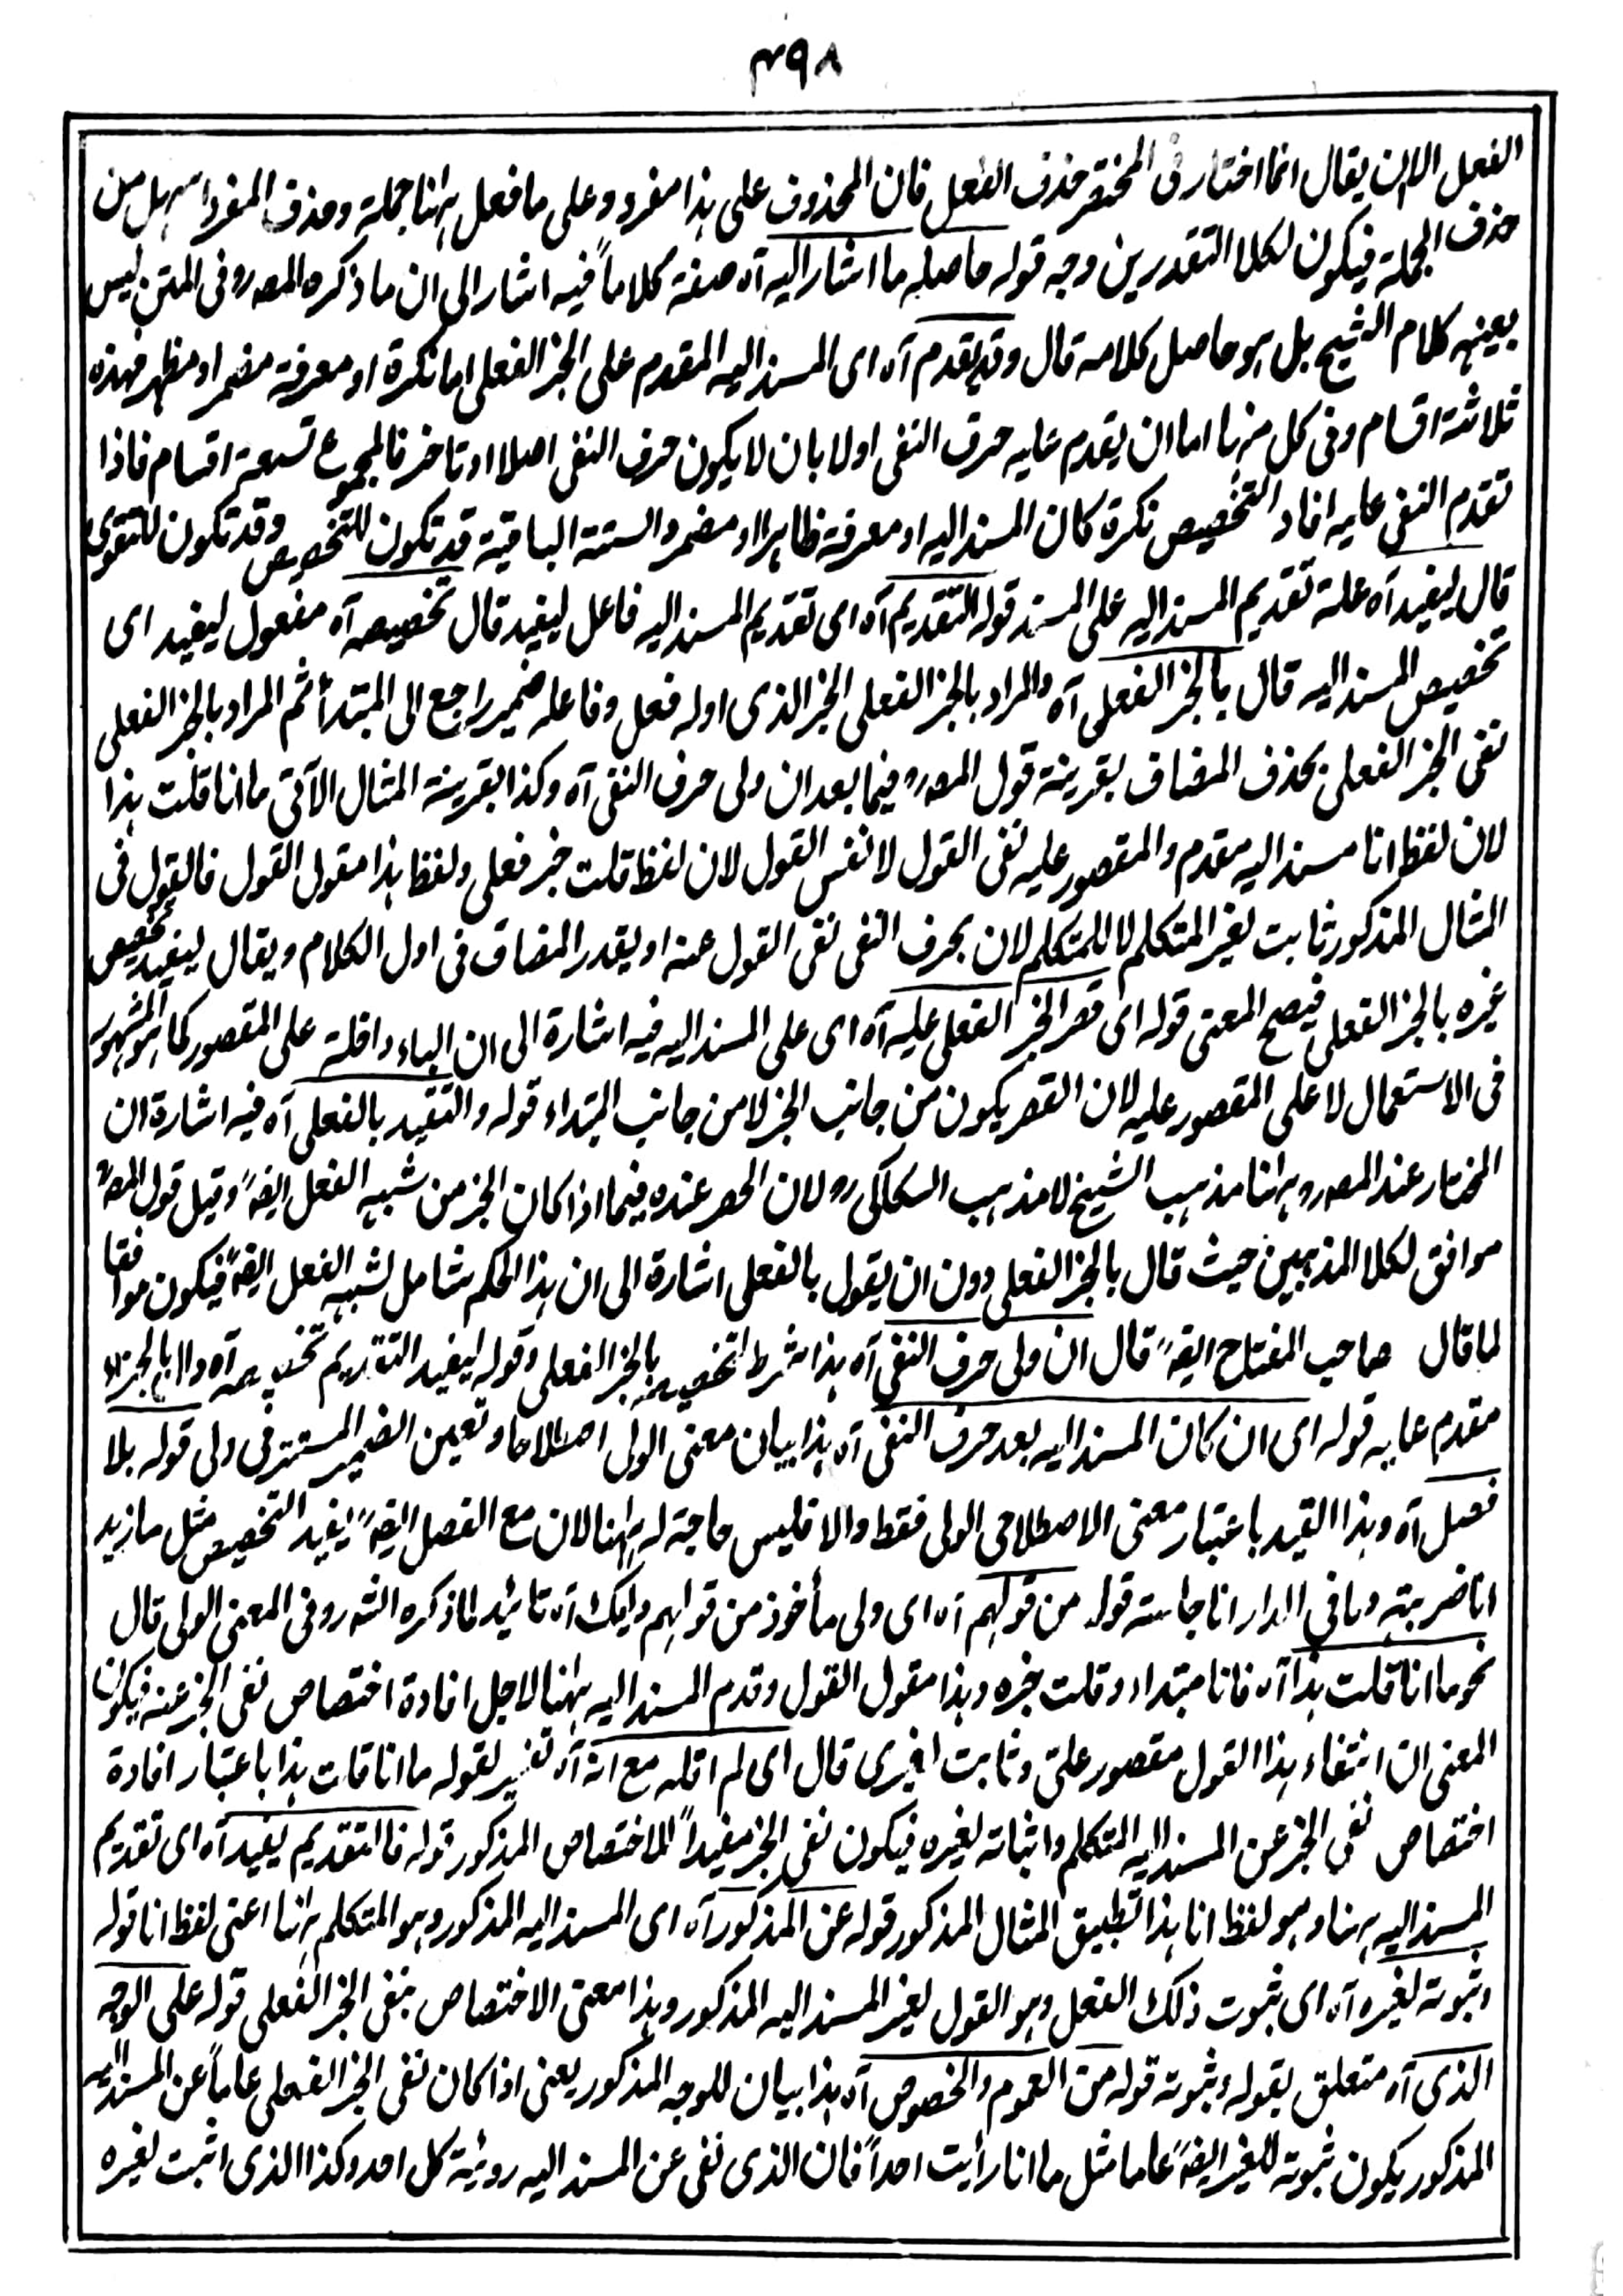 ٣٩٨
الفعل الا ان يقال انما اختار فى المختصر حذف الفعل فان المحذوف على هذا مفرد وعلى ما فعل ههنا جملة وحذف المفرد اسهل من
حذف الجملة فيكون لكلا التقدرين وجه قوله حاصله ما اشار اليه آه صفة كلاماً فيه اشار الى ان ما ذكره المصرو فى المتن ليس
بعينه كلام الشيخ بل هو حاصل كلامه قال وقد يقدم آه اى المسند اليه المقدم على الخبر الفعلى اما نكرة او معرفة مضمر او مظهر فهذه
ثلاثة اقسام وفى كل منها اما ان يقدم عليه حرف النفى اولا بان لا يكون حرف النفى اصلا او تاخر فالمجموع تسعة اقسام فاذا
تقدم النفى عليه افاد التخصيص نكرة كان المسند اليه او معرفة ظاهرا او مضمر والستة الباقية قد تكون للتخصيص وقد تكون للتقوى
قال ليفيد آه علة تقديم المسند اليه على المسند قوله التقديم آه اى تقديم المسند اليه فاعل ليفيد قال تخصيصه آه مفعول ليفيد اى
تخصيص المسند اليه قال بالخبر الفعلى آه والمراد بالخبر الفعلى الخبر الذى اوله فعل وفاعله ضمير راجع الى المبتدأ ثم المراد بالخبر الفعلى
نفى الخبر الفعلى بحذف المضاف بقرينة قول المصرو فيما بعد ان ولى حرف النفى آه وكذا بقرينة المثال الآتى ما انا قلت هذا
لان لفظ انا مسند اليه مقدم والمقصور عليه نفى القول لا نفس القول لان لفظ قلت خبر فعلى ولفظ هذا مقول القول فالقول فى
المثال المذكور ثابت لغير المتكلم لا للمتكلم لان بحرف النفى نفى القول عنه او يقدر المضاف فى اول الكلام ويقال ليفيد تخصيص
غيره بالخبر الفعلى فيصح المعنى قوله اى قصر الخبر الفعلى عليه آه اى على المسند اليه فيه اشارة الى ان الباء داخلة على المقصور كما هو المشهور
فى الاستعمال لا على المقصور عليه لان القصر يكون من جانب الخبر لا من جانب المبتداء قوله والتقييد بالفعلى آه فيه اشارة ان
المختار عند المصرو ههنا مذهب الشيخ لا مذهب السكاكى رو لان الحصر عنده فيما اذا كان الخبر من شبه الفعل ايضاً وقيل قول المص
موافق لكلا المذهبين حيث قال بالخبر الفعلى دون ان يقول بالفعلى اشارة الى ان هذا الحكم شامل لشبه الفعل ايضاً فيكون موافقا
لما قال صاحب المفتاح ايضاً قال ان ولى حرف النفى آه هذا شرط لتخصيصه بالخبر الفعلى وقوله ليفيد التقديم تخصيصه آه دال بالجزاء
مقدم عليه قوله اى ان كان المسند اليه بعد حرف النفى آه هذا بيان معنى الولى اصطلاحا وتعيين الضمير المستتر فى ولى قوله بلا
فصل آه وهذا القيد باعتبار معنى الاصطلاحى الولى فقط والا فليس حاجة له ههنا لان مع الفصل ايضاً يفيد التخصيص مثل ما زيد
انا ضربته وما فى الدار انا جلسته قوله من قولهم آه اى ولى مأخوذ من قولهم وليك آه تائيد لما ذكره الشه رو فى المعنى الولى قال
نحو ما انا قلت هذا آه فانا مبتداء وقلت خبره وهذا مقول القول وقدم المسند اليه ههنا لاجل افادة اختصاص نفى الخبر عنه فيكون
المعنى ان انتفاء هذا القول مقصور علىّ وثابت لغيرى قال اى لم اقله مع انه آه تفسير لقوله ما انا قلت هذا باعتبار افادة
اختصاص نفى الخبر عن المسند اليه المتكلم واثباته لغيره فيكون نفى الخبر مفيداً للاختصاص المذكور قوله فالتقديم يفيد آه اى تقديم
المسند اليه ههنا وهو لفظ انا هذا تطبيق المثال المذكور قوله عن المذكور آه اى المسند اليه المذكور وهو المتكلم ههنا اعنى لفظ انا قوله
وثبوته لغيره آه اى ثبوت ذلك الفعل وهو القول لغير المسند اليه المذكور وهذا معنى الاختصاص بنفى الخبر الفعلى قوله على الوجه
الذى آه متعلق بقوله وثبوته قوله من العموم والخصوص آه هذا بيان للوجه المذكور يعنى اذا كان نفى الخبر الفعلى عاماً عن المسند اليه
المذكور يكون ثبوته للغير ايضاً عاما مثل ما انا رأيت احداً فان الذى نفى عن المسند اليه روئية كل احد وكذا الذى اثبت لغيره